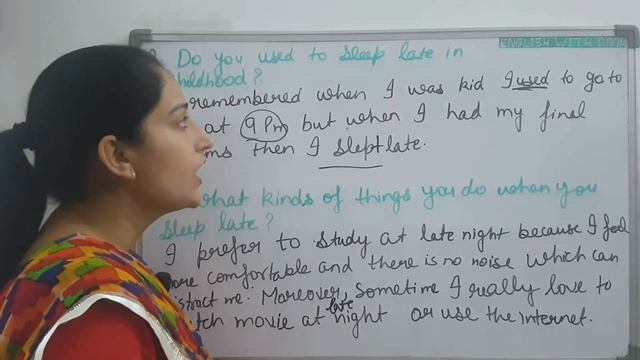 ENGLISH WITH
Do you used to sleep late in
childhood?
remembered when I was kid I used to go to
at 9 Pm but when I had my final
then I slept late.
what kinds of things you do when you
sleep late?
I prefer to study at late night because I feel
more comfortable and there is no noise which can
distract me. Moreover, sometime I really love to
watch movie at late night or use the internet.